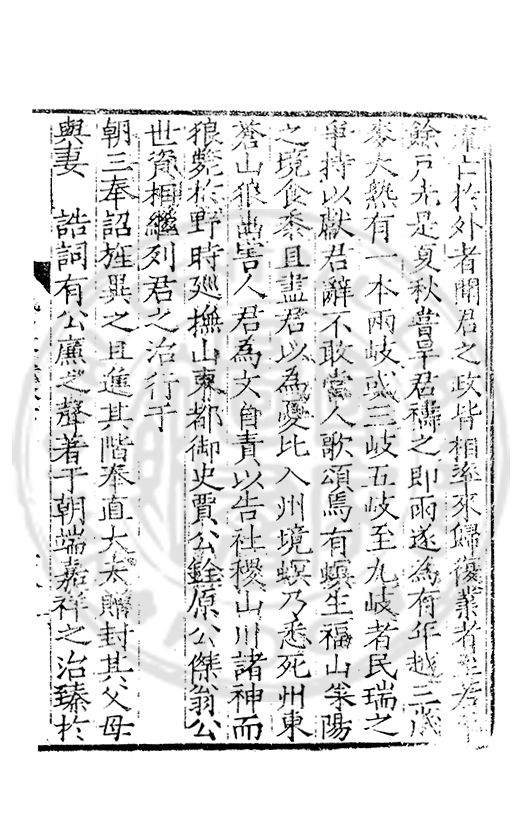 亡於外者聞君之政皆相率來歸復業者至若干
餘戶先是夏秋嘗旱君禱之即雨遂為有年越三歲
麥大熟有一本兩岐或三岐五岐至九岐者民瑞之
爭持以獻君辭不敢當人歌頌焉有螟生福山萊陽
之境食黍且盡君以為憂比入州境螟乃悉死州東
蒼山狼出害人君為文自責以告社稷山川諸神而
狼斃於野時巡撫山東都御史賈公銓原公傑翁公
世資相繼列君之治行于
朝三奉詔旌異之且進其階奉直大夫贈封其父母
與妻 誥詞有公廉之聲著于朝端嘉祥之治臻於